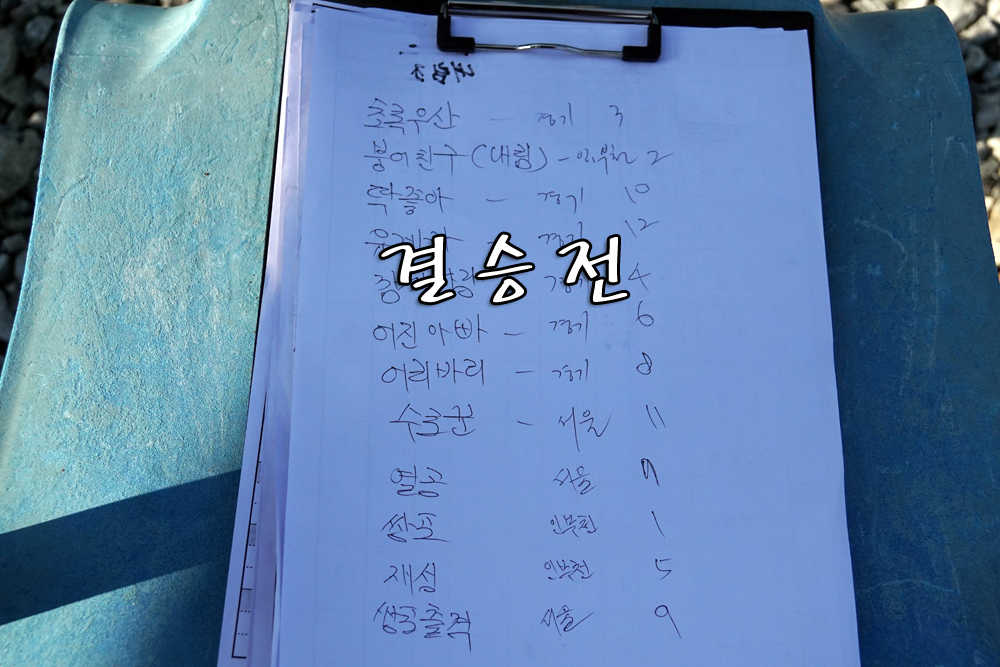 초록우산 - 경기 3
붕어친구(대림) - 인부천 2
딱좋아 - 경기 10
경기 12
결승전
경기 4
어진아빠 - 경기 6
어리바리 - 경기 8
수호군 - 서울 11
열공 서울
쌍포 인부천 1
재섬 인부천 5
쌍포출격 서울 9